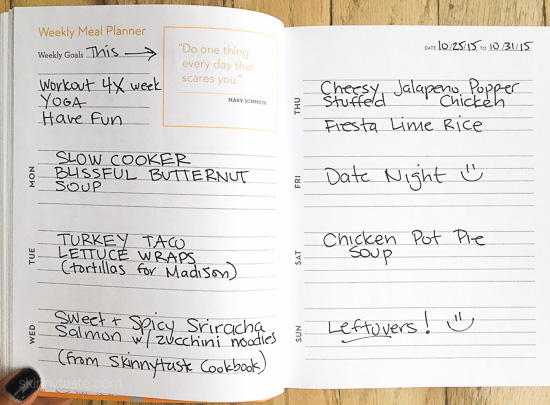 Weekly Meal Planner
Weekly Goals This →
Workout 4X week
YOGA
Have Fun
"Do one thing
every day that
scares you."
MARY SCHMICH
MON
SLOW COOKER
BLISSFUL BUTTERNUT
SOUP
TUE
TURKEY TACO
LETTUCE WRAPS
(tortillas for Madison)
WED
Sweet + Spicy Sriracha
Salmon w/zucchini noodles
(from Skinnytaste Cookbook)
skinnytaste.com
DATE 10/25/15 TO 10/31/15
THU
Cheesy Jalapeno Popper
Stuffed Chicken
Fiesta Lime Rice
FRI
Date Night
SAT
Chicken Pot Pie
Soup
SUN
Leftovers!